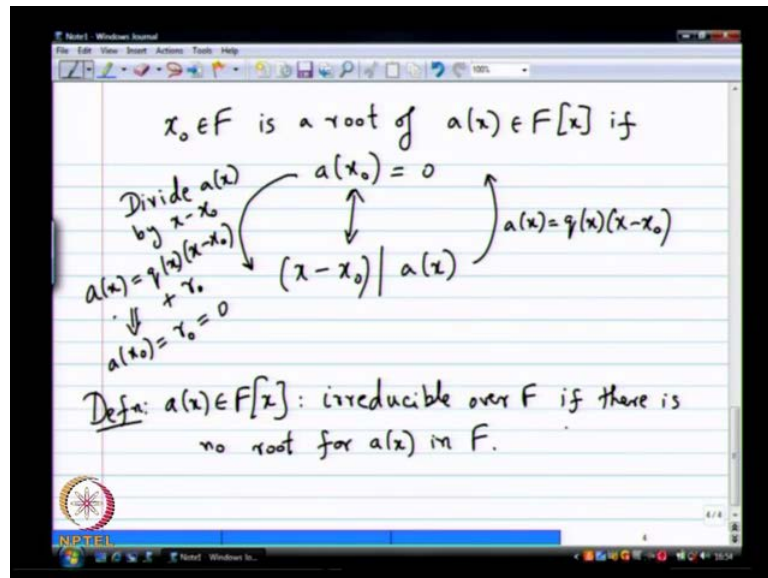 Note1 - Windows Journal
File Edit View Insert Actions Tools Help
100%
x₀ ∈ F is a root of a(x) ∈ F[x] if
a(x₀) = 0
Divide a(x)
by x-x₀
a(x) = q(x)(x-x₀)
+ r₀
⇓
a(x₀) = r₀ = 0
(x-x₀) | a(x)
a(x) = q(x)(x-x₀)
Defn: a(x) ∈ F[x] : irreducible over F if there is
no root for a(x) in F.
4/4
4
NPTEL
Note1 - Windows Jo...
16:54